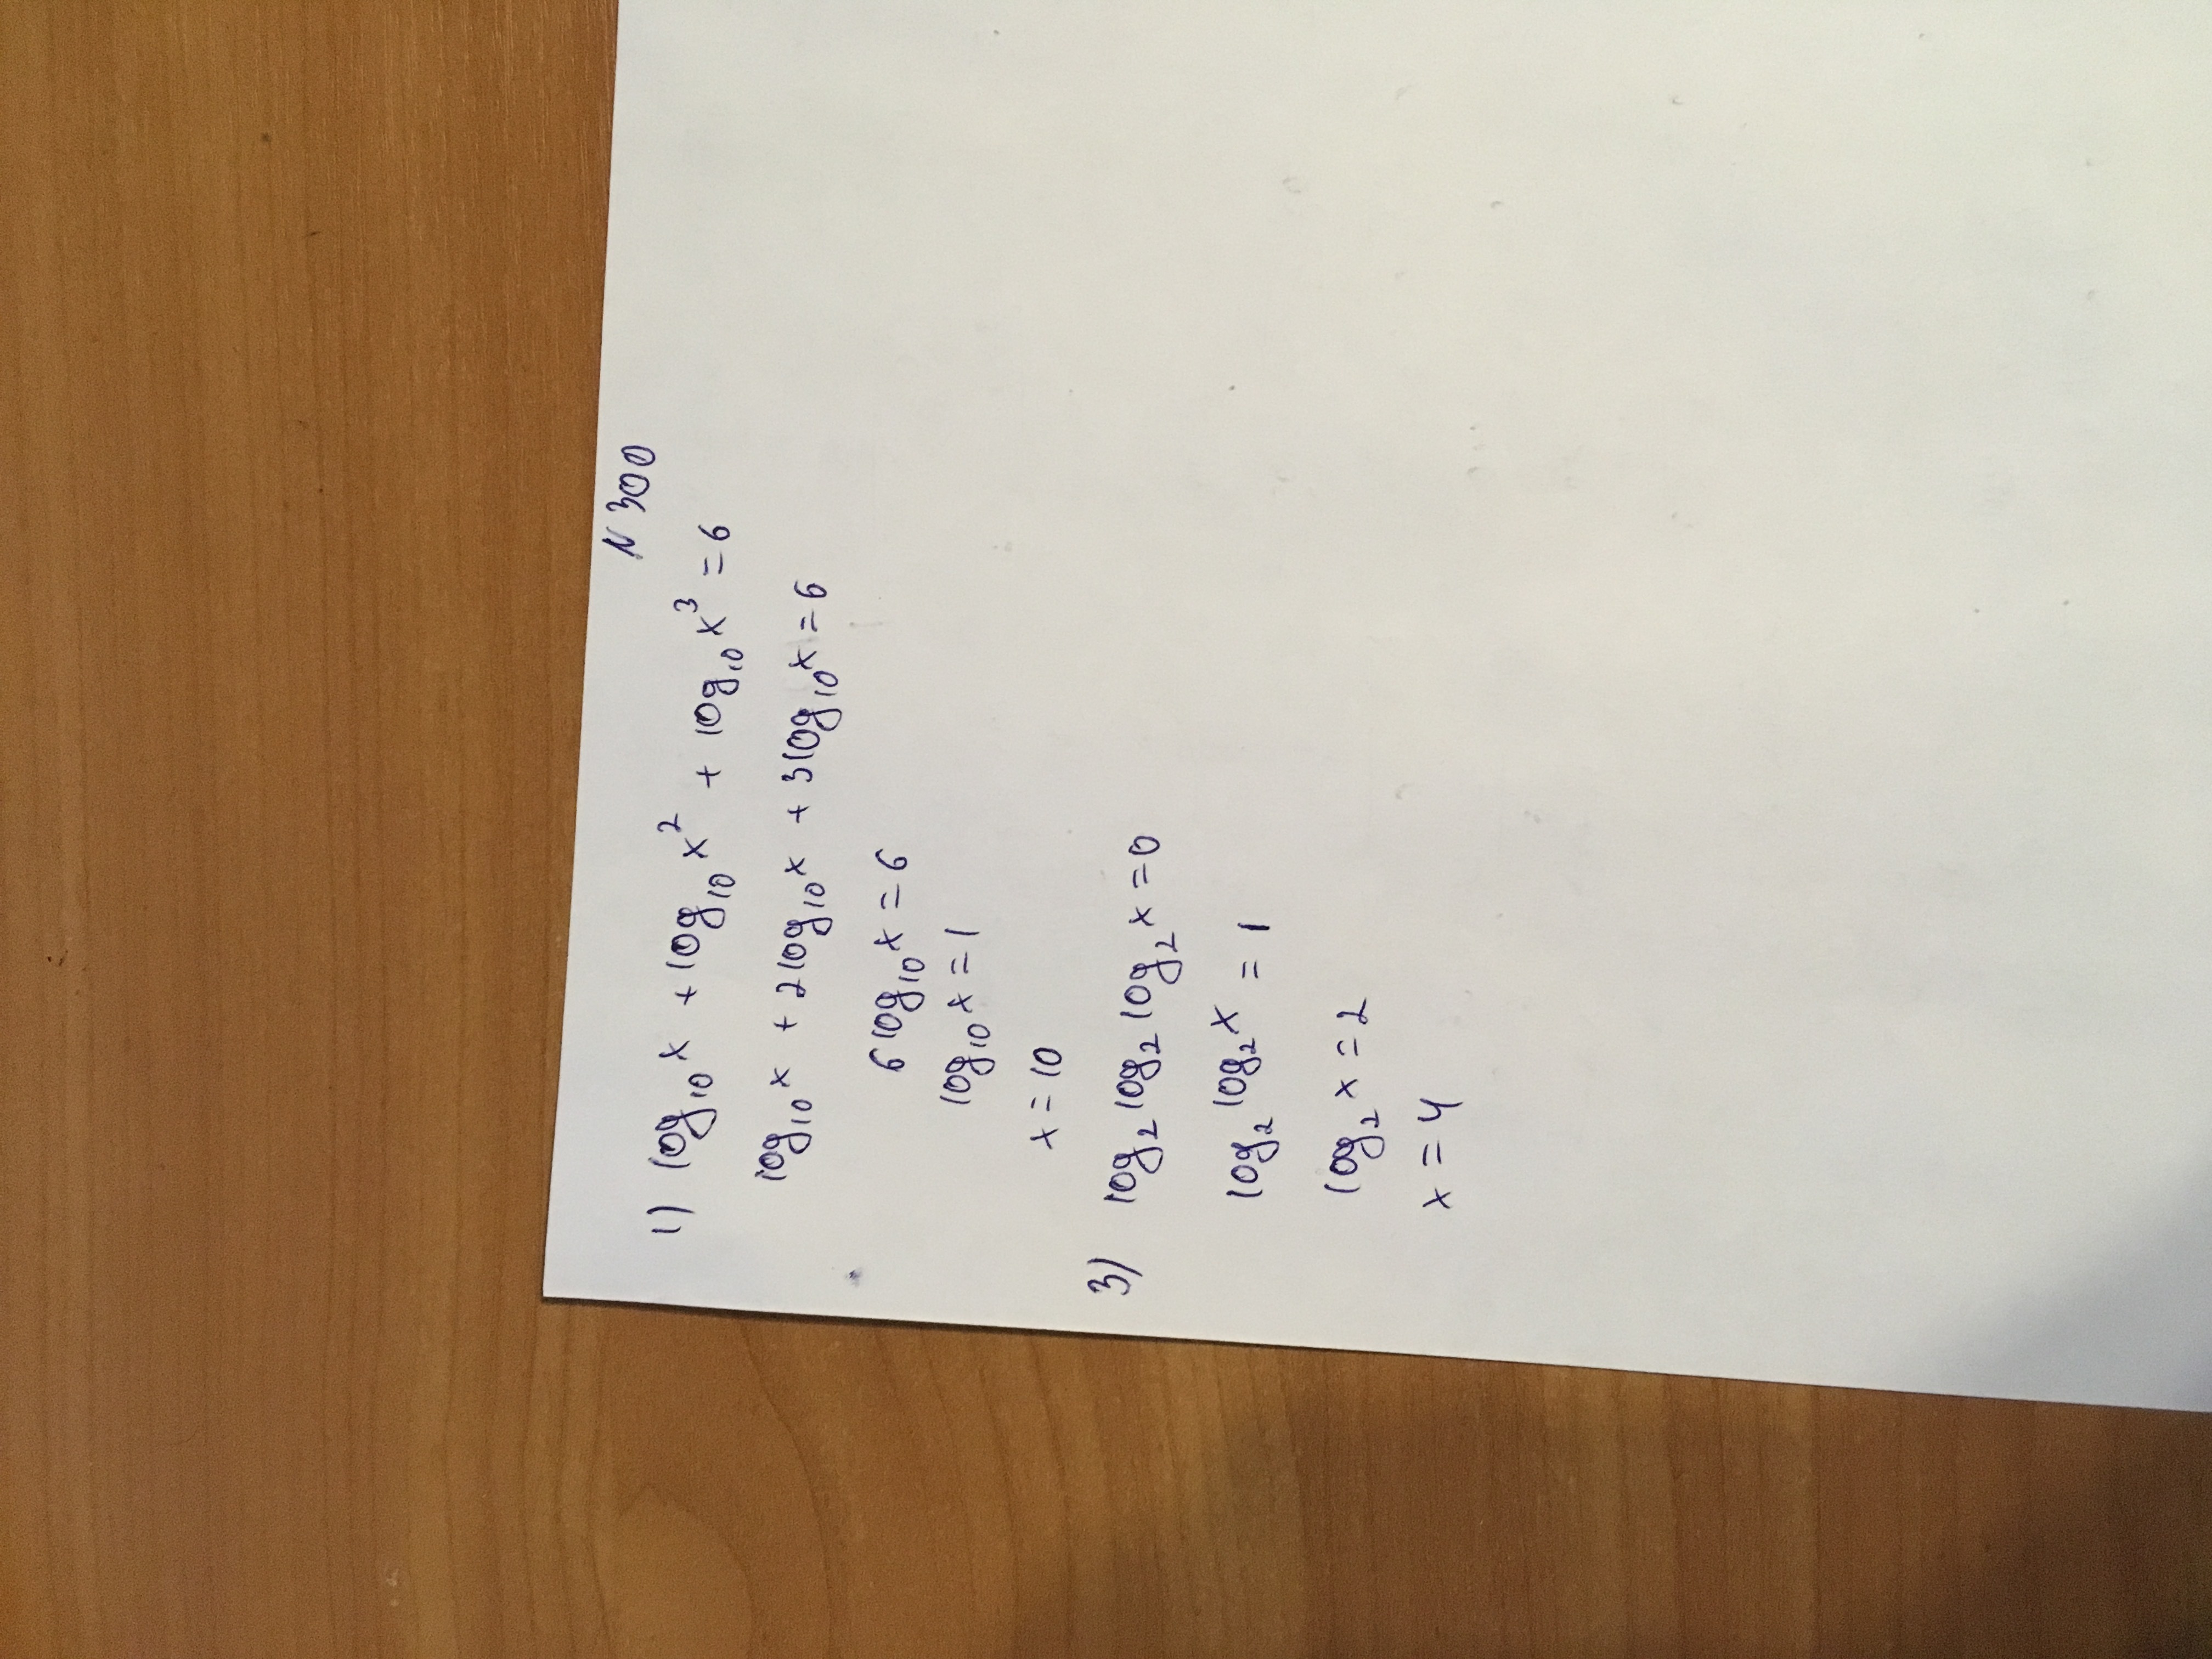 N 300
1) log₁₀x + log₁₀x² + log₁₀x³ = 6
log₁₀x + 2log₁₀x + 3log₁₀x = 6
6log₁₀x = 6
log₁₀x = 1
x = 10
3) log₂log₂log₂x = 0
log₂log₂x = 1
log₂x = 2
x = 4